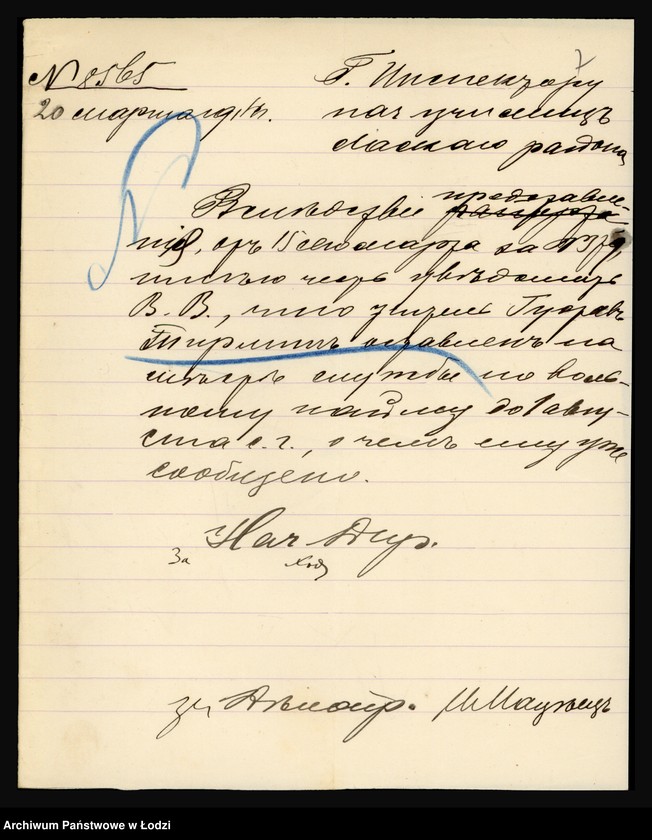 N 8565
20 марта 191 г.
7
Г. Инспектору
нач училищъ
Ласкаго района
Вслѣдствіе представле-
нія, отъ 15 сего марта за №
имѣю честь увѣдомить
В. В., что учитель Густавъ
оставленъ на
службы по воль-
ному найму до 1 авгу-
ста с. г., о чемъ ему уже
сообщено.
За Нач Дир.
за Дѣлопр.
Archiwum Państwowe w Łodzi